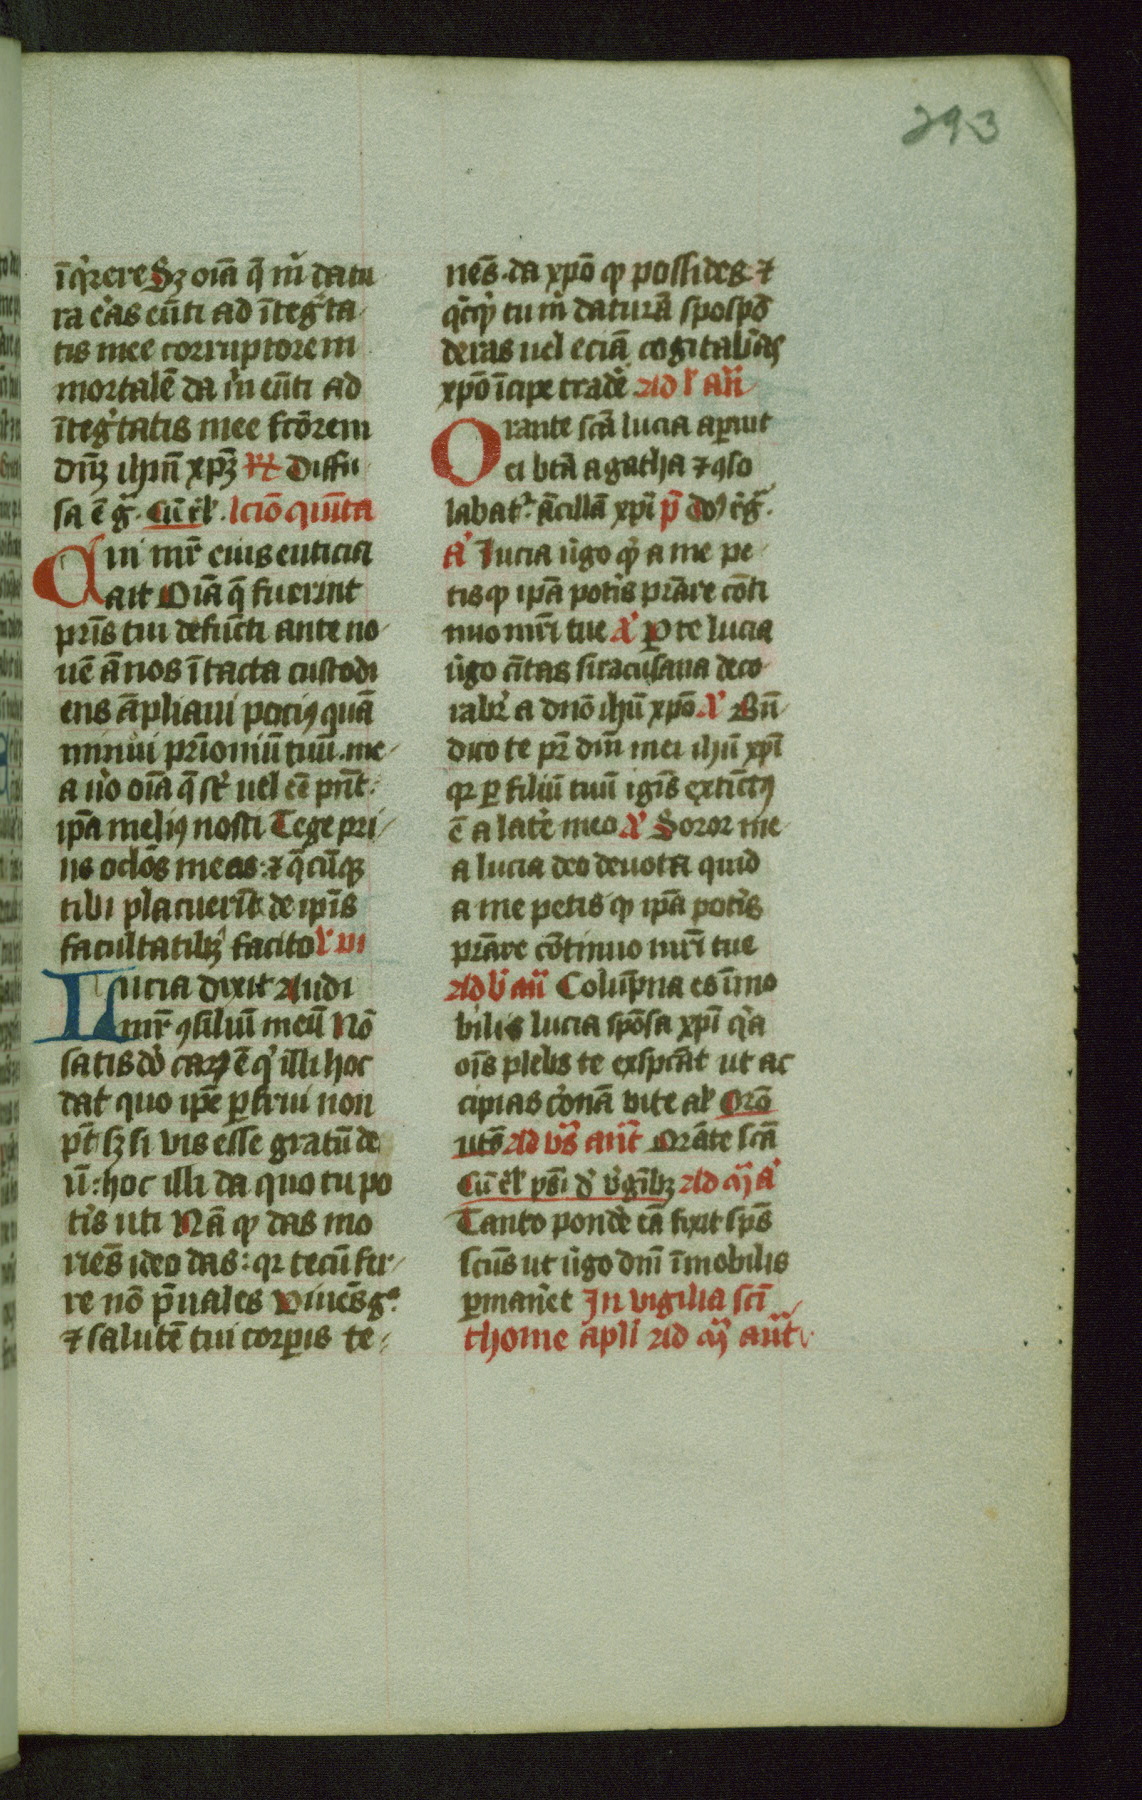 293
īq̇rere Sꝫ oīa q̄ m̄ datu
ra ēas eūti ad ītegͥta
tis mee corruptorem
mortalē da m̄ eūti ad
ītegͥtatis mee fcōrem
dn̄ꝫ ihm̄ xp̄ꝫ Diffu
sa ē gͣ. Cū r̄l. lcīo quīta
Cui mr̄ eius euticia
ait Oīa q̄ fuerint
pr̄is tui defūcti ante no
uē ānos ītacta custodi
ens āpliaui pociꝰ quā
minui pr̄īoniū tuū. me
a u̇o oīa q̄ st̄ uel eē pn̄t.
ip̄a meliꝰ nosti Tege pri
us oclōs meos: ⁊ q̄cūqꝫ
tibi placuerīt de ip̄is
facultatibꝫ facito l̄ vi
Lucia dixit Audi
mr̄ ꝯsiliū meū Nō
satis dō carꝰ ē qͥ illi hoc
dat quo ip̄e ꝑfrui non
pt̄ sꝫ si vis esse gratū de
ū: hoc illi da quo tu po
tis uti Nā ꝙ das mo
riēs ideo das: qꝛ tecū fer
re nō p̄uales Viuēs gͦ
⁊ salutē tui corꝑis te
nēs. da xp̄o ꝙ possides ⁊
q̇cqͥ tu m̄ daturā spospō
deras uel eciā cogitabas
xp̄o īcipe tradē Ad l̄ an̄
Orante scā lucia aꝑuit
ei btā agatha ⁊ ꝯso
labatᷣ ācillā xp̄i p̄ dō r̄gͣ.
a Lucia ūgo qͥ a me pe
tis ꝙ ip̄a potis pr̄are cōti
nuo mr̄i tue a Ꝑ te lucia
ūgo cītas siracusana deco
rabr̄ a dnō ihū xp̄o. a Bn̄
dico te pr̄ dn̄i mei ihū xp̄i
qꝛ ꝑ filiū tuū ignīs extictꝰ
ē a late meo a Soror me
a lucia deo deuota quid
a me petis ꝙ ip̄a potis
pr̄are cōtinuo mr̄i tue
Ad b̄ an̄ Colūpna es īmo
bilis lucia spōsa xp̄i qͥa
oīs plebs te exspcāt ut ac
cipias cōonā vite al̄ Orō
utō Ad vs̄ ant̄ Orāte scā
Cū r̄l psī d̄ ūgībꝫ Ad m̄ a
Tanto pondē eā fixit sp̄s
scūs ut ūgo dn̄i īmobilis
ꝑmanēt In vigilia scī
thome apli Ad m̄ ant̄